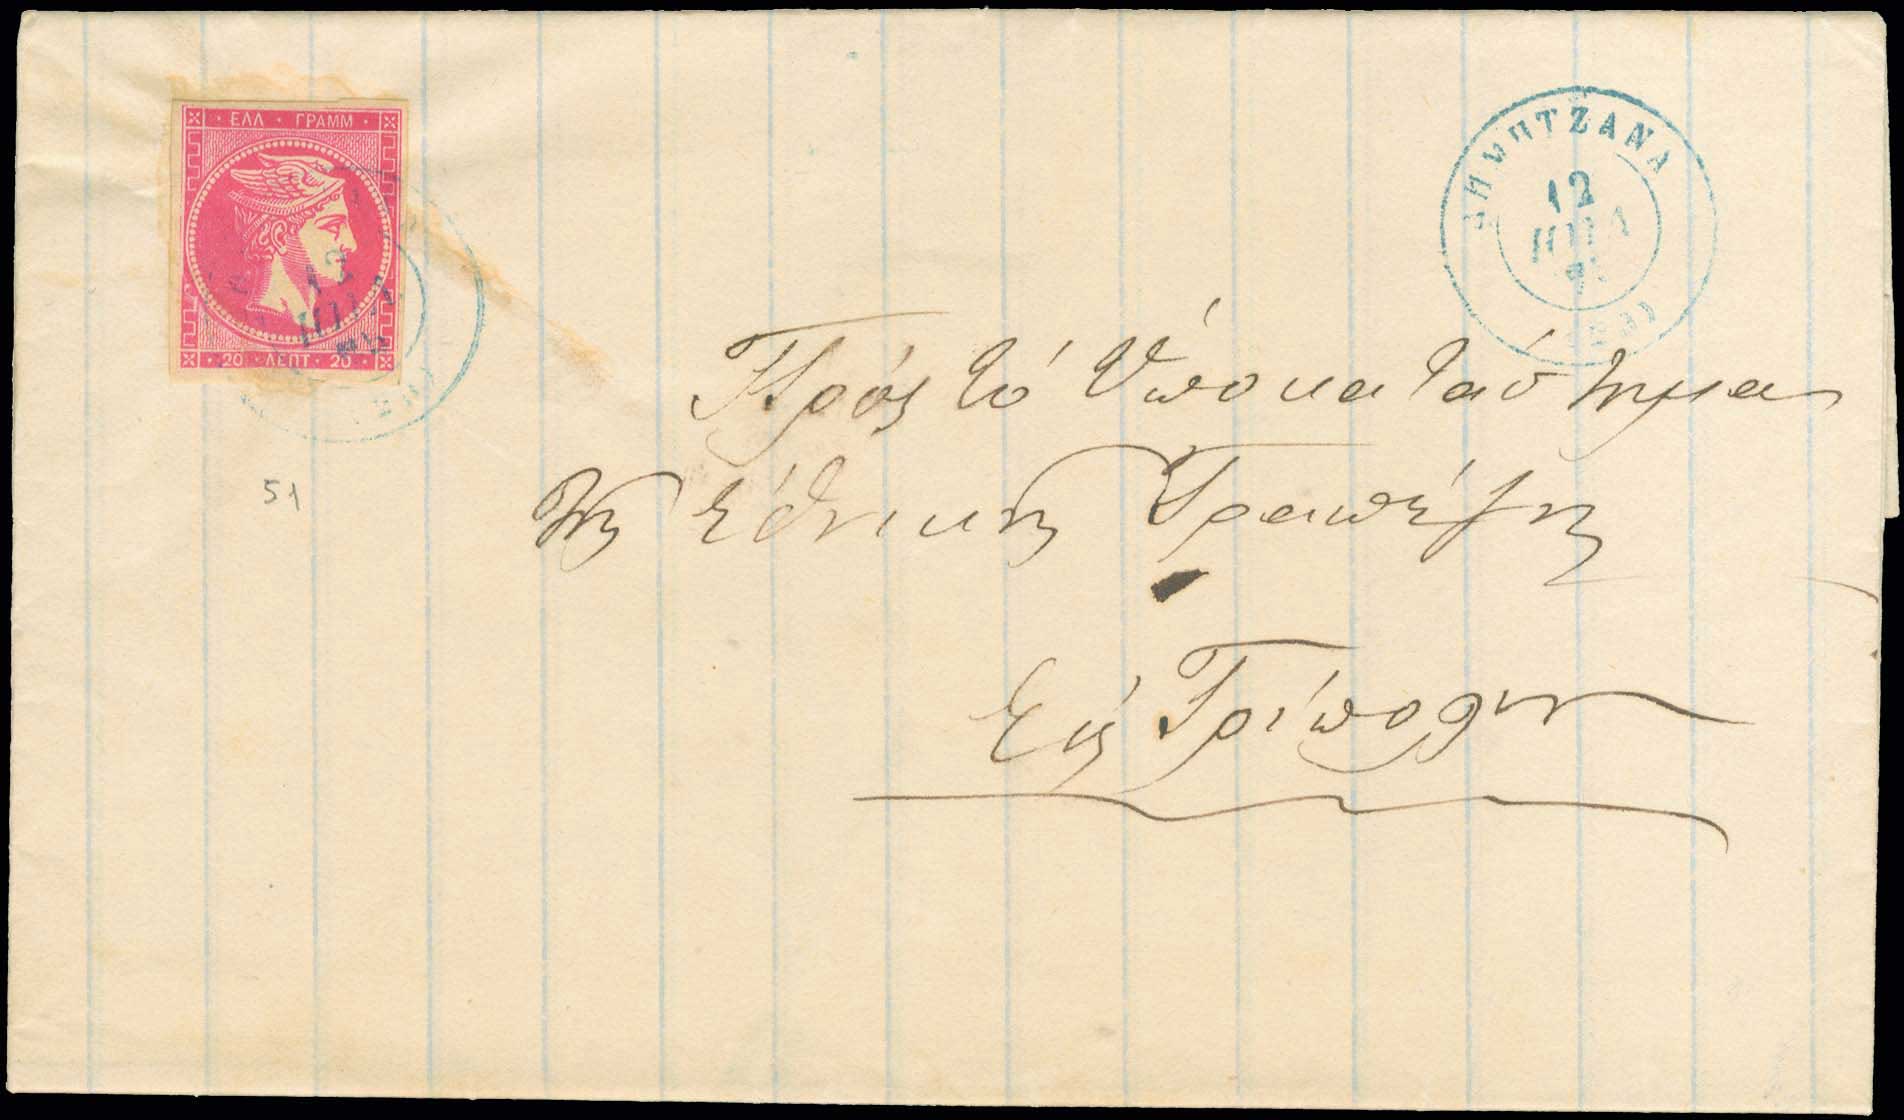 · ΕΛΛ · ΓΡΑΜΜ ·
· 20 · ΛΕΠΤ · 20 ·
12
51
ΔΗΜΗΤΖΑΝΑ
12
Πρός τό Υποκατάστημα
της Εθνικης Τραπέζης
Εις Τρίπολιν